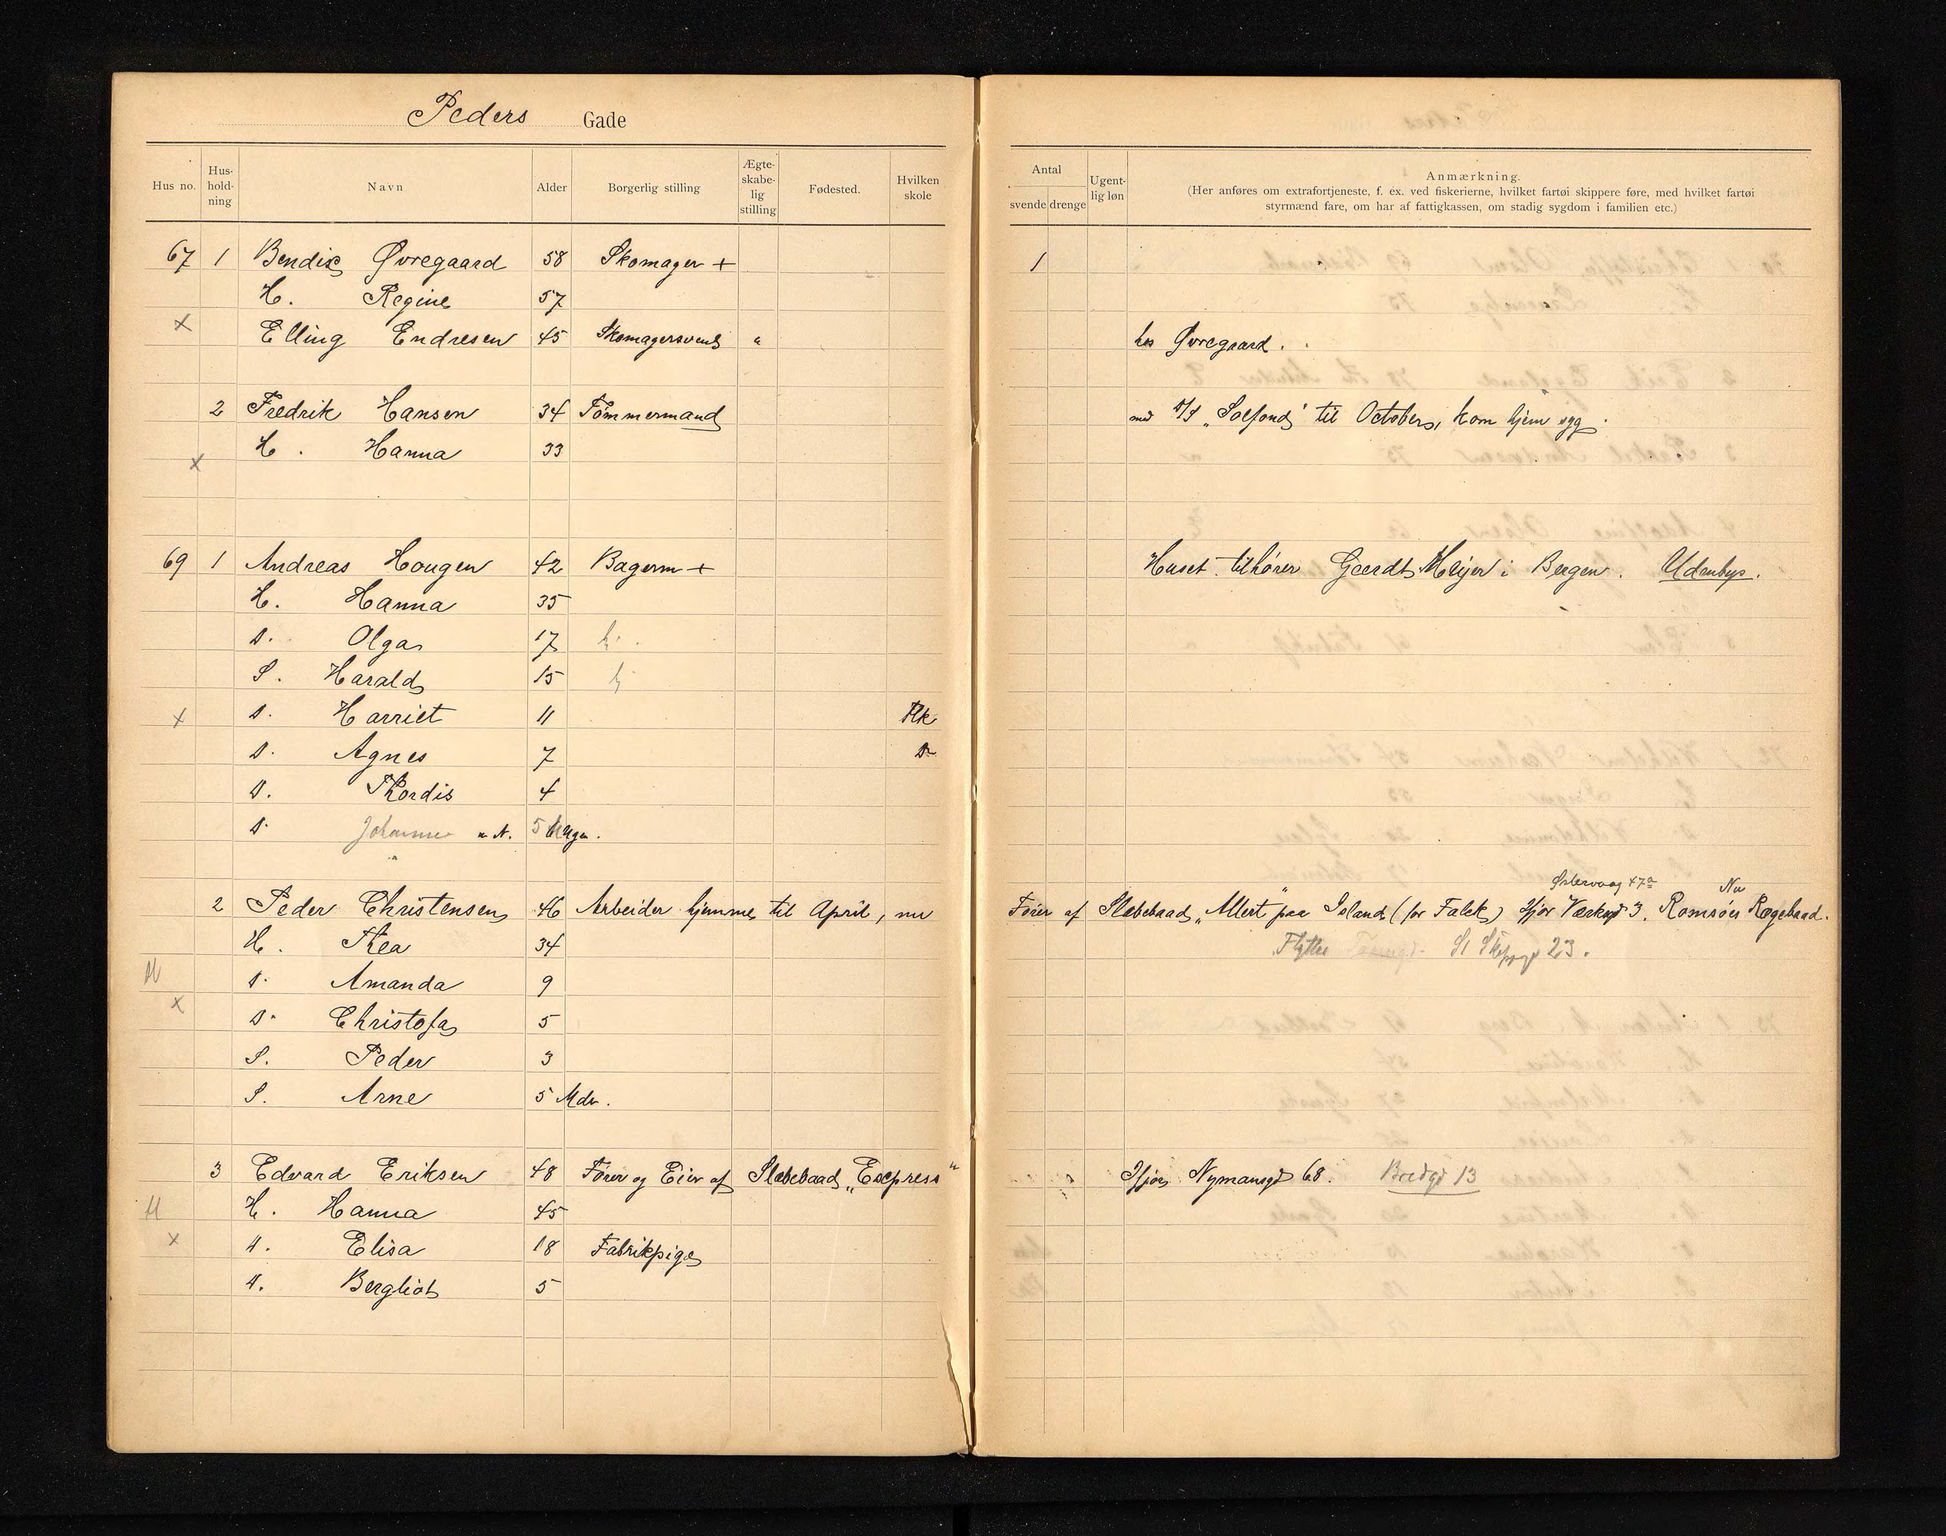 Peders Gade
Hus no. Hus-hold-ning Navn Alder Borgerlig stilling Ægte-skabe-lig stilling Fødested. Hvilken skole
Antal svende drenge Ugent-lig løn Anmærkning.
(Her anføres om extrafortjeneste, f. ex. ved fiskerierne, hvilket fartøi skippere føre, med hvilket fartøi
styrmænd fare, om har af fattigkassen, om stadig sygdom i familien etc.)
67 1 Bendix Øvregaard 58 Skomager + 1
H. Regine 57
x Elling Endresen 45 Skomagersvend " hos Øvregaard.
2 Fredrik Hansen 34 Tømmermand med D/S „Solfond" til October, kom hjem syg.
H. Hanna 33
x
69 1 Andreas Hougen 42 Bagerm + Huset tilhører Geerdt Meijer i Bergen. Udenbys.
H. Hanna 35
D. Olga 17 hj.
S. Harald 15 hj
x D. Harriet 11 Flk
D. Agnes 7 D
D. Thordis 4
D. Johanne 5 Uger.
Østervaag 47a Nu
2 Peder Christensen 46 Arbeider hjemme til April, nu Fører af Slæbebaad „Allert" paa Island (for Falck) Ifjor Værksgd 3. Romsøes Røgebaad.
H. Thea 34 Flytter St Skipsgd 23.
D. Amanda 9
x D. Christofa 5
S. Peder 3
S. Arne 5 Mdr.
3 Edvard Eriksen 48 Fører og Eier af Slæbebaad „Express" Ifjor Nymansgd 68. Bredgd 13
H. Hanna 45
x D. Elisa 18 Fabrikpige
D. Bergliot 5